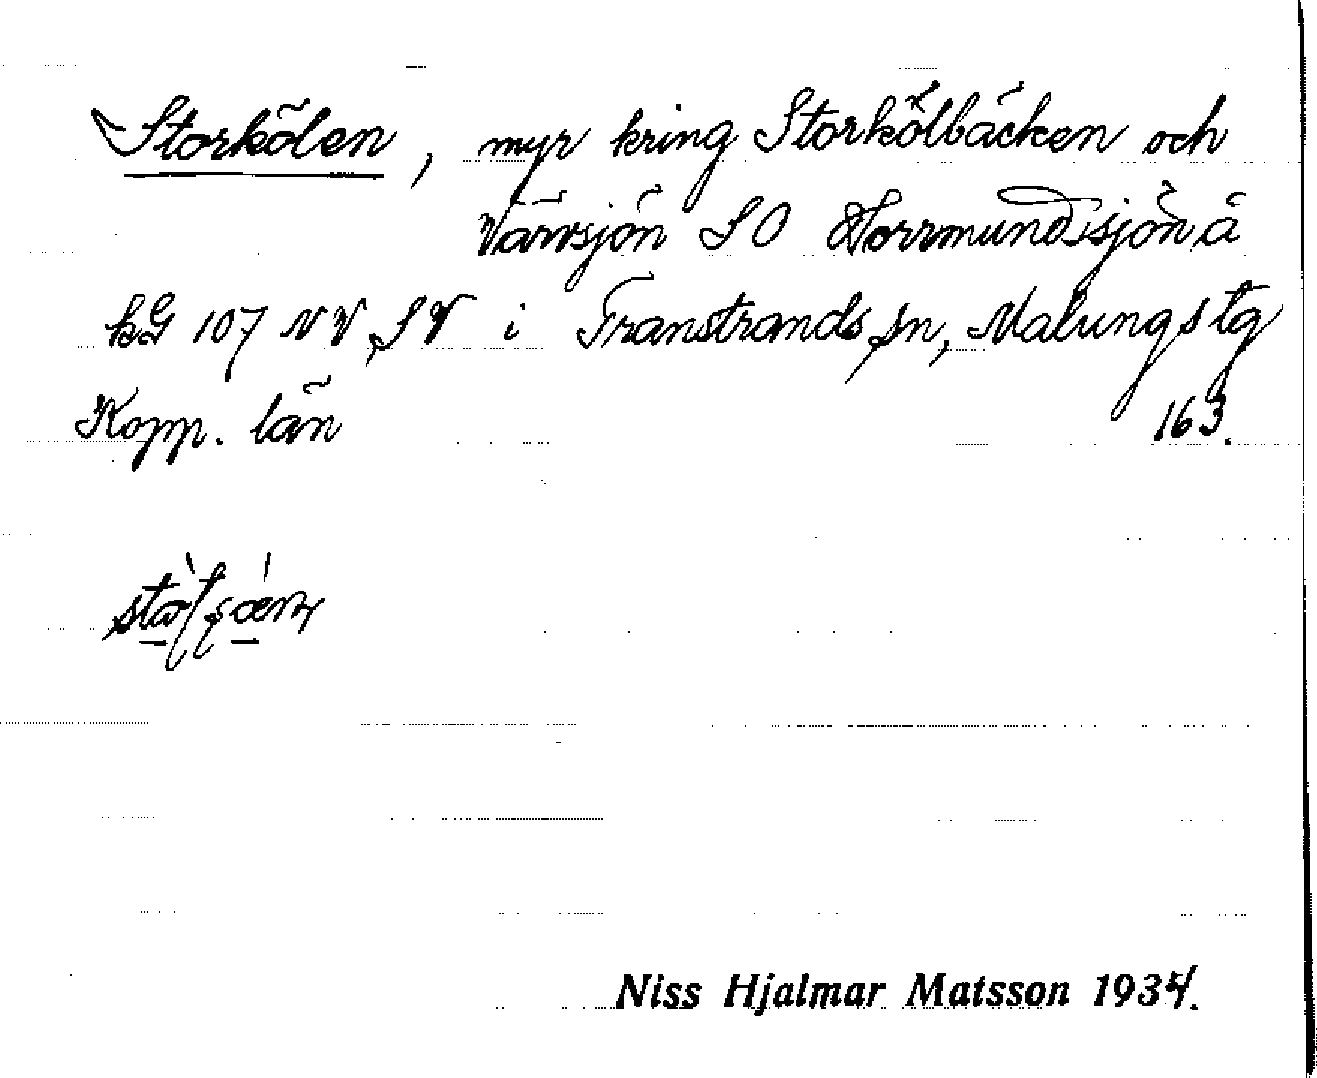 Storkölen, myr kring Storkölbäcken och
Vänsjön SO Horrmundsjön å
kG 107 NV, SV i Transtrands sn, Malungs tg
Kopp. län 163.
Niss Hjalmar Matsson 1934.